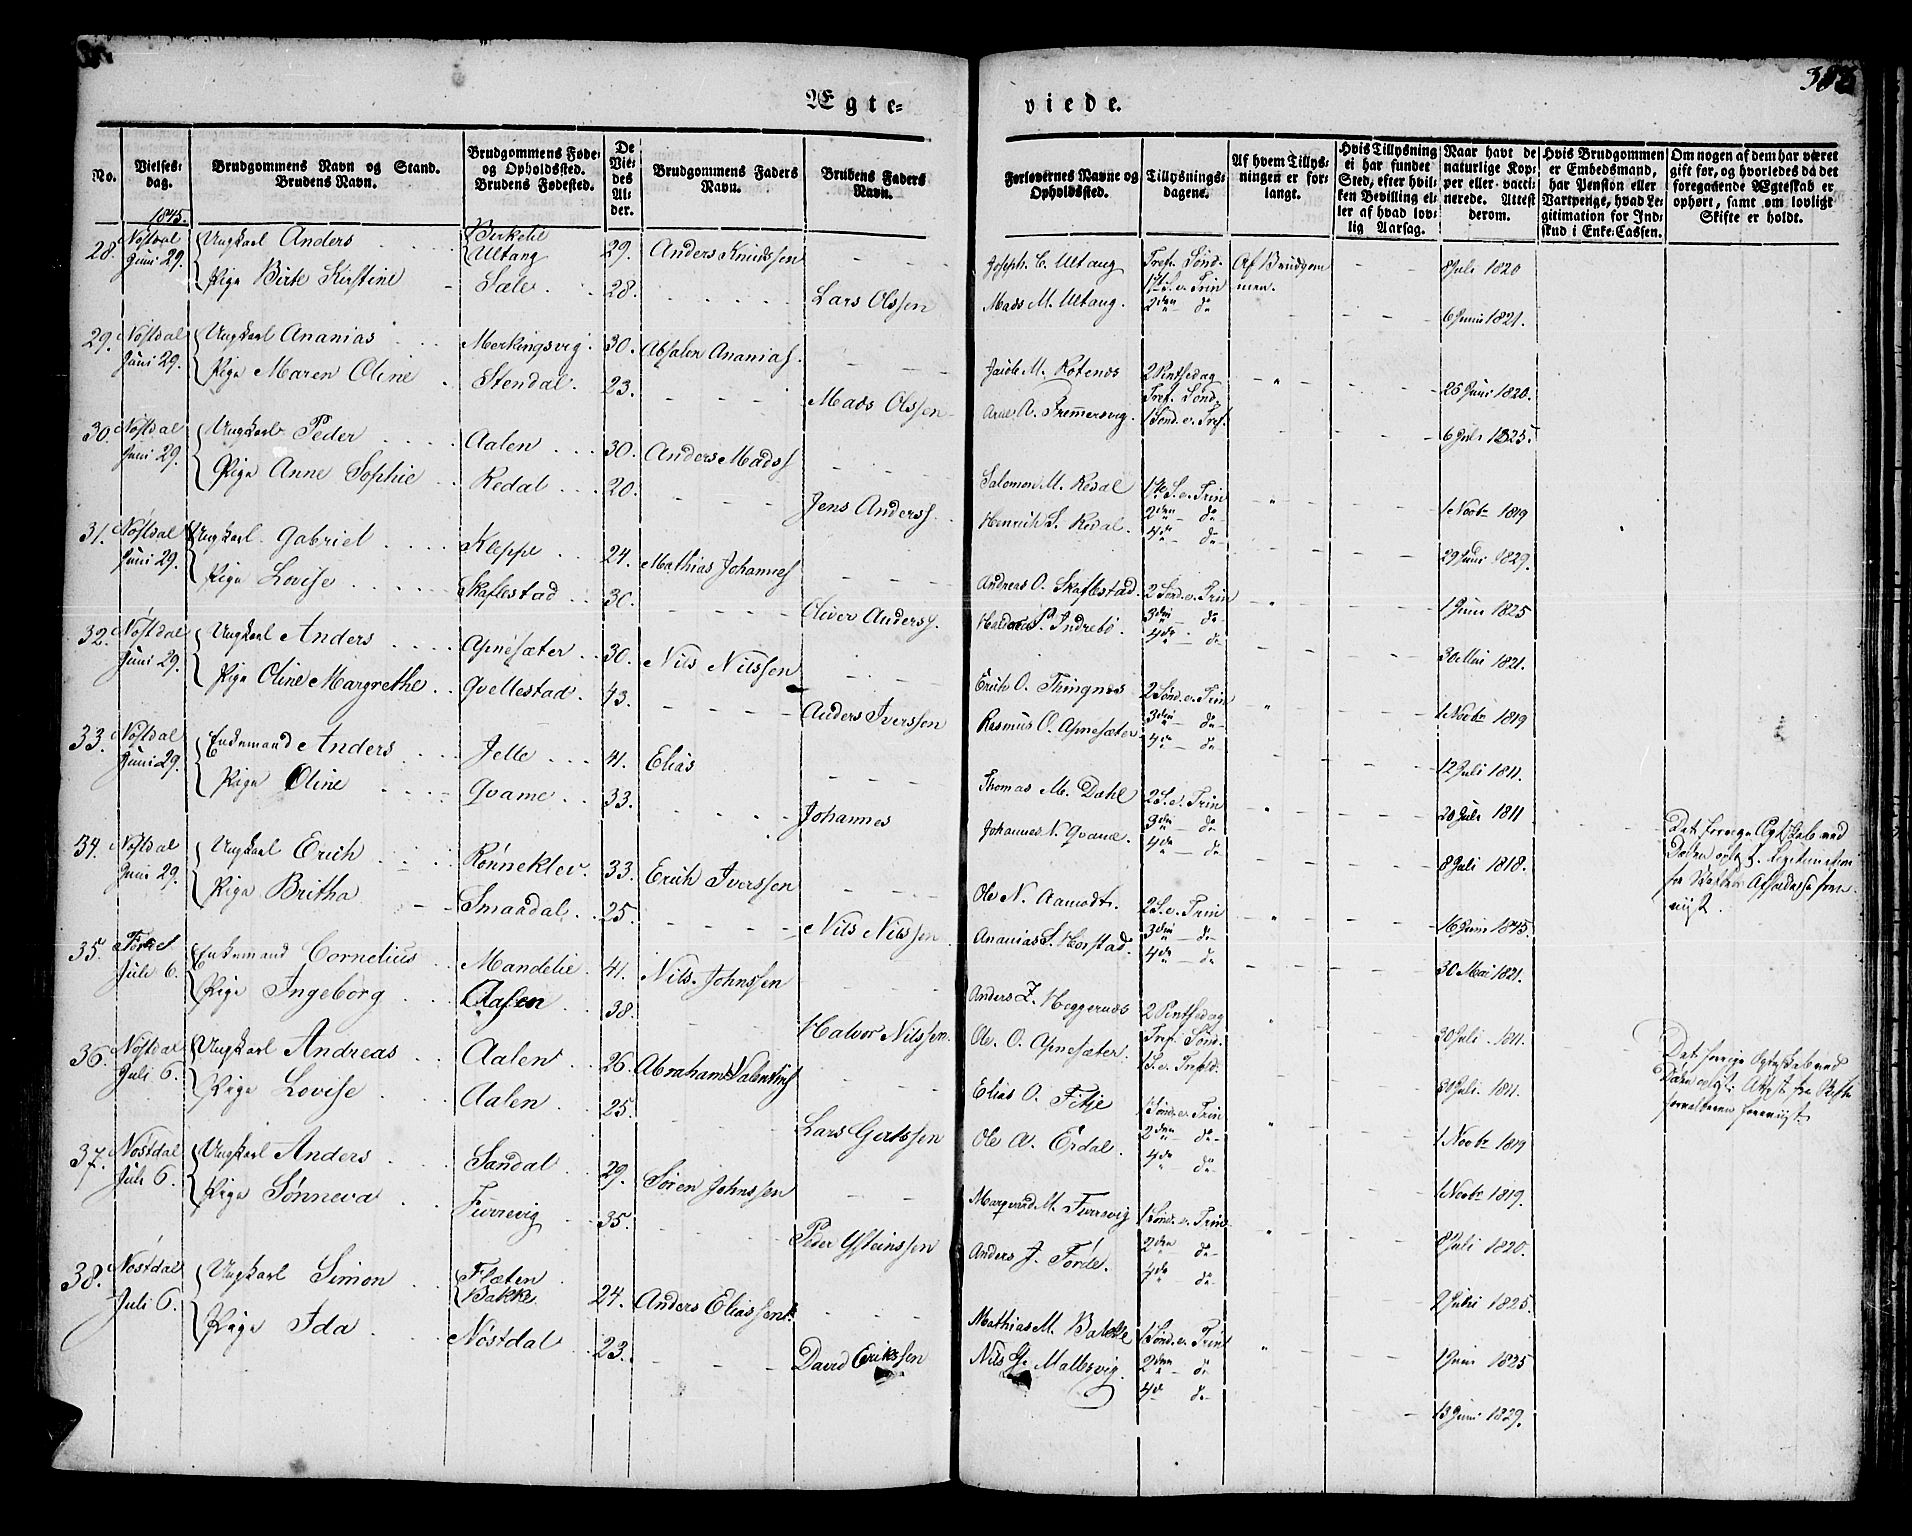 383
Ægte-
viede.
No.
Vielses-
dag.
1845.
Brudgommens Navn og Stand.
Brudens Navn.
Brudgommens Føde-
og Opholdssted.
Brudens Fødested.
De
Vie-
des
Al-
der.
Brudgommens Faders
Navn.
Brudens Faders
Navn.
Forlovernes Navne og
Opholdssted.
Tillysnings-
dagene.
Af hvem Tillys-
ningen er for-
langt.
Hvis Tillysning
ei har fundet
Sted, efter hvil-
ken Bevilling el-
ler af hvad lov-
lig Aarsag.
Naar havt de
naturlige Kop-
per eller vacci-
nerede. Attest
derom.
Hvis Brudgommen
er Embedsmand,
har Pension eller
Vartpenge, hvad Le-
gitimation for Ind-
skud i Enke-Cassen.
Om nogen af dem har været
gift før, og hvorledes da det
foregaaende Ægteskab er
ophørt, samt om lovligt
Skifte er holdt.
28. Nøstdal Juni 29.
Ungkarl Anders Birkelie Ultang 29. Anders Knudssen
Pige Birte Kirstine Sæle 28. Lars Olssen
Joseph C. Ultang Tref. Sönd. Af Brudgom 8 Juli 1820
Mads M. Ultang 1ste S. e. Trin men. 6 Juni 1821.
2den do
29. Nøstdal Juni 29.
Ungkarl Ananias Merkingsvig 30. Absalon Ananias.
Pige Maren Oline Stendal 23. Mads Olssen
Jacob M. Rotenes 2 Pintsedag 26 Juni 1820.
Arne A. Tremersvig Tref. Sönd. 6 Juli 1825.
1 Sönd. e. Tref.
30. Nøstdal Juni 29.
Ungkarl Peder Aalen 30. Anders Mads.
Pige Anne Sophie Redal 20. Jens Anders.
Salomon M. Redal 1ste S. e. Trin 1 Novbr 1819
Henrich S. Redal 2den do 29 Juni 1829.
4de do
31. Nøstdal Juni 29.
Ungkarl Gabriel Kleppe 24. Mathias Johannes
Pige Lovise Skaflestad 30. Oliver Anders.
Andreas O. Skaflestad. 2 Sönd. e. Trin 1 Juni 1825
P. Indrebö. 3die do 30 Mai 1821.
4de do
32. Nøstdal Juni 29.
Ungkarl Anders Apnesæter 30. Nils Nilssen
Pige Oline Margrethe Gvellestad 43. Anders Iverssen
Erich O. Thingnes 2 Sönd. e. Trin 1 Novbr 1819
Rasmus O. Apnesæter 3die do 12 Juli 1811.
4de do
33. Nøstdal Juni 29.
Enkemand Anders Jelle 41. Elias
Pige Oline Qvame 33. Johannes
Thomas M. Dahl 2 S. e. Trin 20 Juli 1811
Johannes N. Qvame. 3die do 8 Juli 1818.
4de do
Det forrige Ægteskab ved
34. Nøstdal Juni 29.
Ungkarl Erich Rønneklev 33. Erich Iverssen
Pige Britha Smaadal 25. Nils Nilssen
Ole N. Aamodt. 2 S. e. Trin 16 Juni 1845.
Ananias S. Horstad. 3die do 30 Mai 1821.
4de do
35. Førde Juli 6.
Enkemand Cornelius Mandelie 41. Nils Johnssen
Pige Ingeborg Aasen 38. Halvor Nilssen
Anders Z. Heggernes 2 Pintsedag 30 Juli 1811.
Ole O. Apnesæter. Tref. Sönd. 30 Juli 1811.
1 S. e. Trefold.
Det forrige Ægteskab ved
36. Nøstdal Juli 6.
Ungkarl Andreas Aalen 26. Abraham Valentins
Pige Lovise Aalen 25. Lars Gertssen
Elias O. Fitje 1 Sönd. e. Trin 1 Novbr 1819
Ole A. Erdal. 2den do 1 Novbr 1819.
4de do
37. Nøstdal Juli 6.
Ungkarl Anders Sandal 29. Søren Johnssen
Pige Sønneva Furrevig 35. Peder Ysteinssen
Marqvard M. Furrevig 1 Sönd. e. Trin 8 Juli 1820.
Anders J. Førde. 2den do 2 Juni 1825.
4de do
38. Nøstdal Juli 6.
Ungkarl Simon Flæten Bakke 24. Anders Eliassen
Pige Ida Nøstdal 23. David Erikssen
Mathias M. Bakke 1 Sönd. e. Trin 1 Juni 1825
Nils G. Mallesvig. 2den do 13 Juni 1829.
4de do